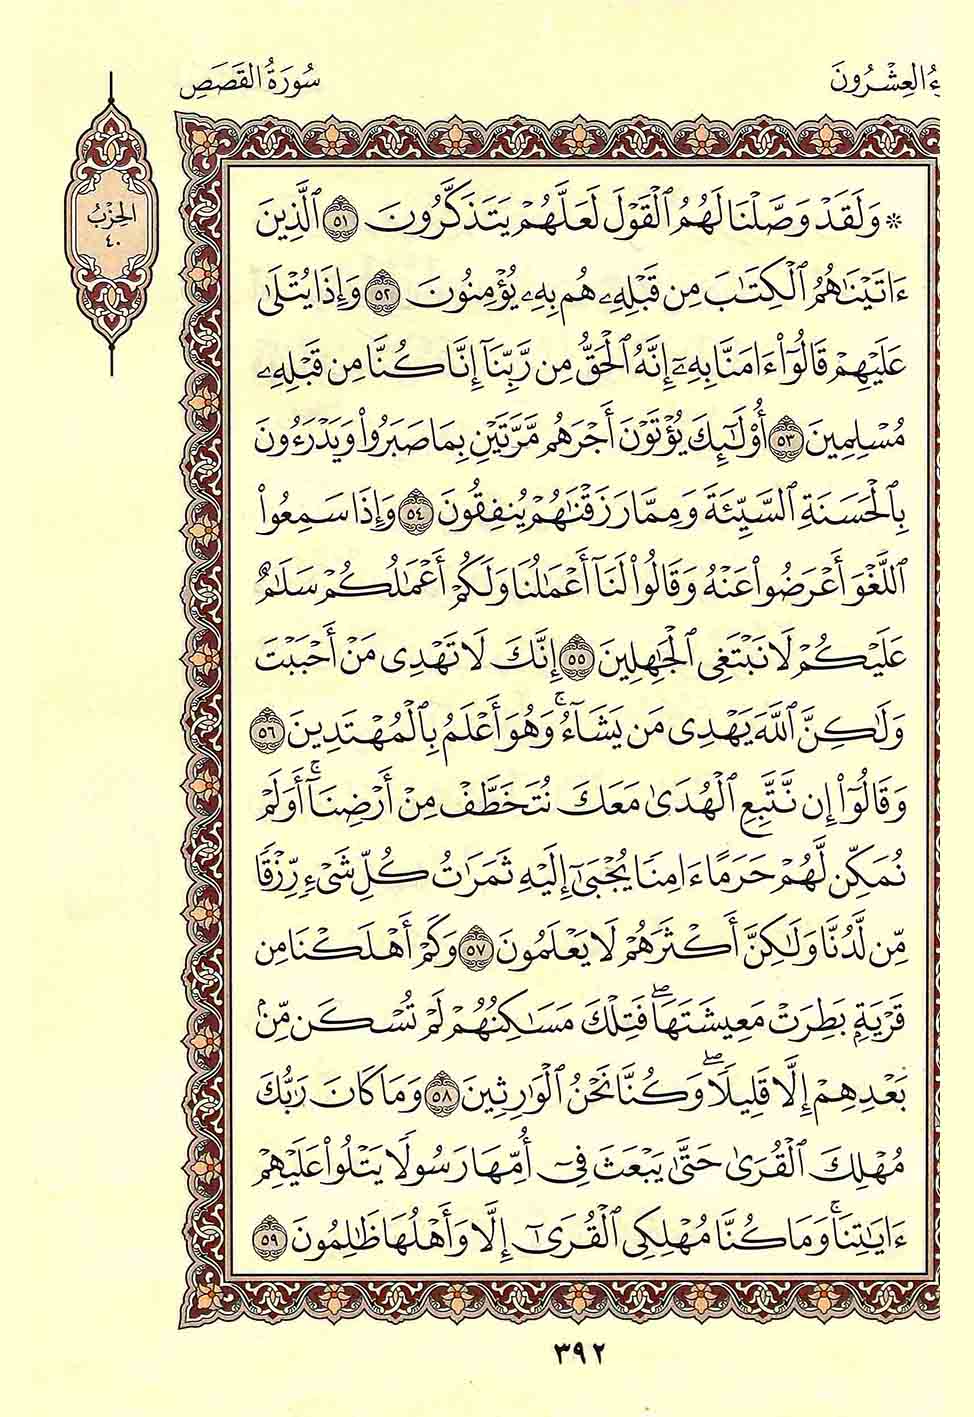 ءُ العِشْرُونَ
سُورَةُ القَصَصِ
الحِزْبُ
٤٠
۞ وَلَقَدْ وَصَّلْنَا لَهُمُ ٱلْقَوْلَ لَعَلَّهُمْ يَتَذَكَّرُونَ ٥١ ٱلَّذِينَ
ءَاتَيْنَٰهُمُ ٱلْكِتَٰبَ مِن قَبْلِهِۦ هُم بِهِۦ يُؤْمِنُونَ ٥٢ وَإِذَا يُتْلَىٰ
عَلَيْهِمْ قَالُوٓا۟ ءَامَنَّا بِهِۦٓ إِنَّهُ ٱلْحَقُّ مِن رَّبِّنَآ إِنَّا كُنَّا مِن قَبْلِهِۦ
مُسْلِمِينَ ٥٣ أُو۟لَٰٓئِكَ يُؤْتَوْنَ أَجْرَهُم مَّرَّتَيْنِ بِمَا صَبَرُوا۟ وَيَدْرَءُونَ
بِٱلْحَسَنَةِ ٱلسَّيِّئَةَ وَمِمَّا رَزَقْنَٰهُمْ يُنفِقُونَ ٥٤ وَإِذَا سَمِعُوا۟
ٱللَّغْوَ أَعْرَضُوا۟ عَنْهُ وَقَالُوا۟ لَنَآ أَعْمَٰلُنَا وَلَكُمْ أَعْمَٰلُكُمْ سَلَٰمٌ
عَلَيْكُمْ لَا نَبْتَغِى ٱلْجَٰهِلِينَ ٥٥ إِنَّكَ لَا تَهْدِى مَنْ أَحْبَبْتَ
وَلَٰكِنَّ ٱللَّهَ يَهْدِى مَن يَشَآءُ ۚ وَهُوَ أَعْلَمُ بِٱلْمُهْتَدِينَ ٥٦
وَقَالُوٓا۟ إِن نَّتَّبِعِ ٱلْهُدَىٰ مَعَكَ نُتَخَطَّفْ مِنْ أَرْضِنَآ ۚ أَوَلَمْ
نُمَكِّن لَّهُمْ حَرَمًا ءَامِنًا يُجْبَىٰٓ إِلَيْهِ ثَمَرَٰتُ كُلِّ شَىْءٍ رِّزْقًا
مِّن لَّدُنَّا وَلَٰكِنَّ أَكْثَرَهُمْ لَا يَعْلَمُونَ ٥٧ وَكَمْ أَهْلَكْنَا مِن
قَرْيَةٍۭ بَطِرَتْ مَعِيشَتَهَا ۖ فَتِلْكَ مَسَٰكِنُهُمْ لَمْ تُسْكَن مِّنۢ
بَعْدِهِمْ إِلَّا قَلِيلًا ۖ وَكُنَّا نَحْنُ ٱلْوَٰرِثِينَ ٥٨ وَمَا كَانَ رَبُّكَ
مُهْلِكَ ٱلْقُرَىٰ حَتَّىٰ يَبْعَثَ فِىٓ أُمِّهَا رَسُولًا يَتْلُوا۟ عَلَيْهِمْ
ءَايَٰتِنَا ۚ وَمَا كُنَّا مُهْلِكِى ٱلْقُرَىٰٓ إِلَّا وَأَهْلُهَا ظَٰلِمُونَ ٥٩
٣٩٢